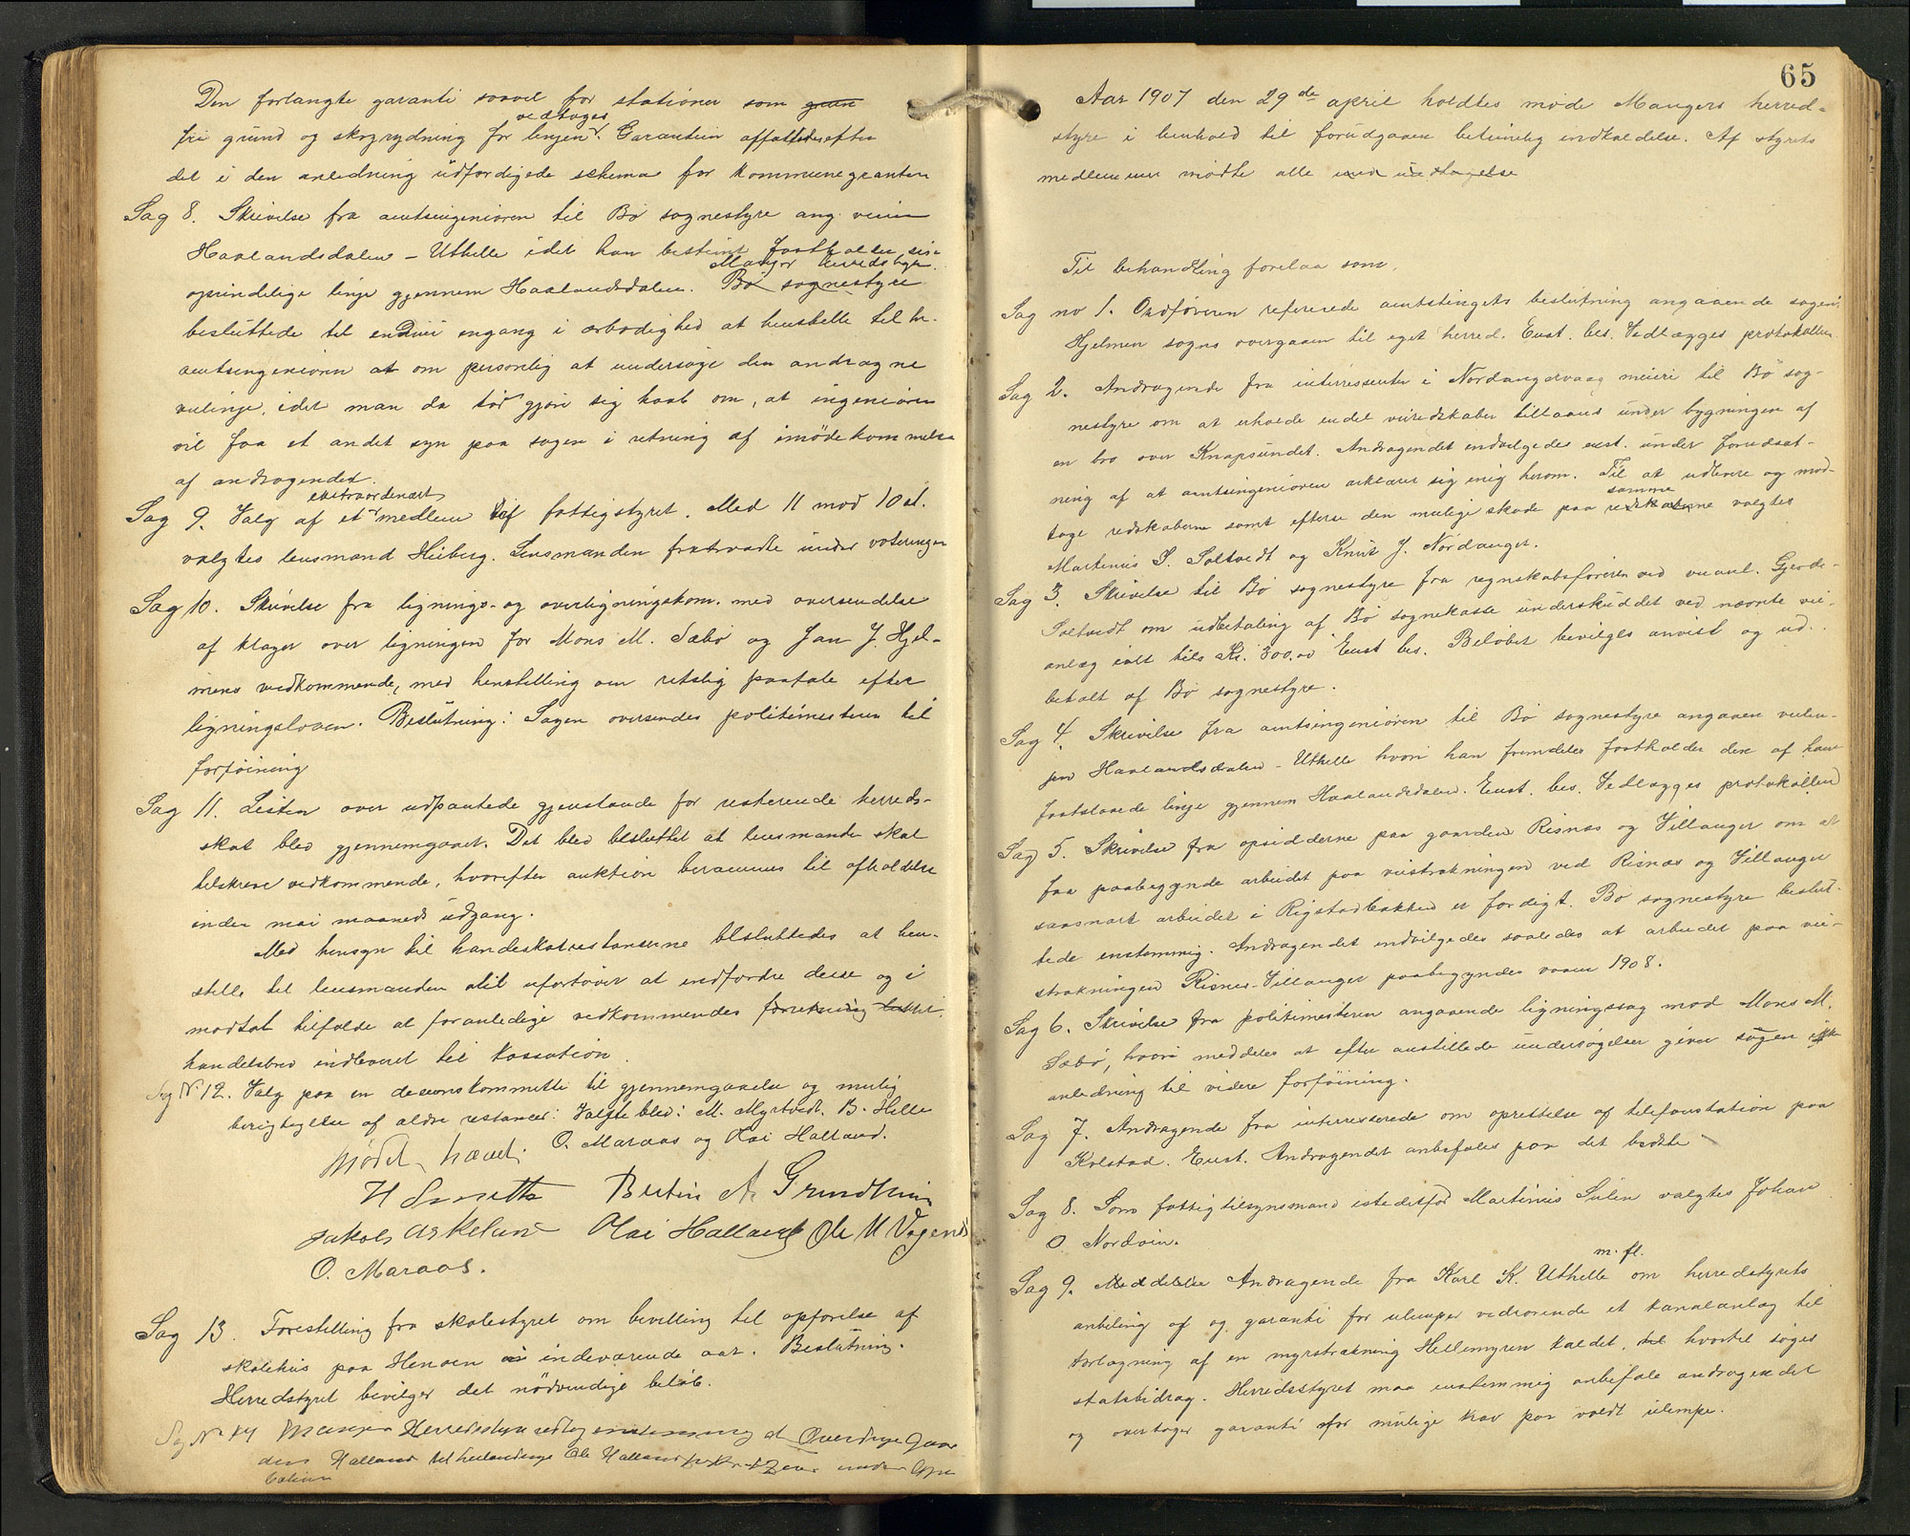 Den forlangte garanti saavel for stationer som grun
vedtoges
fri grund og skogrydning for linjen. Garantien affattedes efter
det i den anledning udfærdigede schema for kommunegrantier
Sag 8. Skrivelse fra amtsingeniøren til Bø sognestyre ang. veien
Haalandsdalen - Uthelle idet han bestemt fastholder sin
Manger herredstyre
oprindelige linje gjennem Haalandsdalen. Bø sognestyre
besluttede til endnu engang i ærbødighed at henstille til hr.
amtsingeniøren at om personlig at undersøge den andragne
veilinje, idet man da tør gjøre sig haab om, at ingeniøren
vil faa et andet syn paa sagen i retning af imødekommelse
af andragendet.
ekstraordenært
Sag 9. Valg af et medlem af fattigstyret. Med 11 mod 10 st.
valgtes lensmand Heiberg. Lensmanden fratraadte under voteringen
Sag 10. Skrivelse fra lignings- og overligningskom. med oversendelse
af klager over ligningen for Mons M. Sæbø og Jan J. Hjel-
mens vedkommende, med henstilling om retslig paatale efter
ligningsloven. Beslutning: Sagen oversendes politimesteren til
forføining
Sag 11. Listen over udpantede gjenstande for resterende herreds-
skat blev gjennemgaaet. Det blev besluttet at lensmanden skal
tilskrive vedkommende, hvorefter auktion berammes til afholdelse
inden mai maaneds udgang.
Med hensyn til handelskatrestanserne besluttedes at hen-
stille til lensmanden at ufortøvet at indfordre disse og i
modsat tilfælde at foranledige vedkommendes forretning lukket
handelsbrev indleveret til kassation.
Sag Nº 12. Valg paa en decisionskommitte til gjennemgaaelse og mulig
berigtigelse af ældre restancer: Valgte blev: M. Myrtvedt. B. Helle
O. Maraas og Olai Halland.
Mødet hævet.
H Smitth Bertin A. Grundtvin
Jakob Askeland Olai Halland Ole M Vagenes
O. Maraas.
Sag 13. Forestilling fra skolestyret om bevilling til opførelse af
skolehus paa Henøen i indeværende aar. Beslutning.
Herredstyret bevilger det nødvendige beløb.
Sag Nº 14 Manger Herredsstyre vedtog enstemmig at Overdrage Gaar
den Halland til Ole Halland under
65
Aar 1907 den 29de april holdtes møde Mangers herred-
styre i henhold til forudgaaen betimelig indkaldelse. Af styrets
medlemmer mødte alle med undtagelse
Til behandling forelaa som.
Sag no 1. Ordføreren refererede amtstingets beslutning angaaende sagen
Hjelmen sogns overgaaen til eget herred. Enst. bes. Vedlægges protokollen
Sag 2. Andragende fra interressenter i Nordangervaag meieri til Bø sog-
nestyre om at erholde endel veiredskaber tillaans under bygningen af
en bro over Knapsundet. Andragendet indvilgedes enst. under forudsæt-
ning af at amtsingeniøren erklærer sig enig herom. Til at udlevere og mod-
samme
tage redskaberne samt efterse den mulige skade paa redskaberne valgtes
Martinus S. Soltvedt og Knut J. Nordanger.
Sag 3. Skrivelse til Bø sognestyre fra regnskabsføreren ved veianl. Gjerde-
Soltvedt om udbetaling af Bø sognekasse underskuddet ved nævnte vei-
anlæg ialt tils Kr. 300.00 Enst bes. Beløbet bevilges anvist og ud-
betalt af Bø sognestyre.
Sag 4. Skrivelse fra amtsingeniøren til Bø sognestyre angaaen veien
paa Haalandsdalen - Uthelle hvori han fremdeles fastholder den af ham
fastslaaede linje gjennem Haalandsdalen. Enst. bes. Vedlægges protokollen
Sag 5. Skrivelse fra opsidderne paa gaarden Risnæs og Villanger om at
faa paabegynde arbeidet paa veistrækningen ved Risnæs og Villanger
saasnart arbeidet i Rigstadbakken er færdigt. Bø sognestyre beslut-
tede enstemmig. Andragendet indvilgedes saaledes at arbeidet paa vei-
strækningen Risnes-Villanger paabegyndes vaaren 1908.
Sag 6. Skrivelse fra politimesteren angaaende ligningssag mod Mons M.
Sæbø, hvori meddeles at efter anstillede undersøgelser giver sagen ikke
anledning til videre forføining.
Sag 7. Andragende fra interresserede om oprettelse af telefonstation paa
Kolstad. Enst. Andragendet anbefales paa det bedste
Sag 8. Som fattigtilsynsmand istedetfor Martinus Sulen valgtes Johan
O. Nordvin.
m. fl.
Sag 9. Meddelelse Andragende fra Karl K. Uthelle om herredstyrets
anbefaling af og garanti for ulemper vedrørende et kanalanlæg til
tørlægning af en myrstrækning Hellemyren kaldet, til hvortil søges
statsbidrag. Herredsstyret maa enstemmig anbefale andragendet
og overtager garanti for mulige krav paa voldt ulempe.